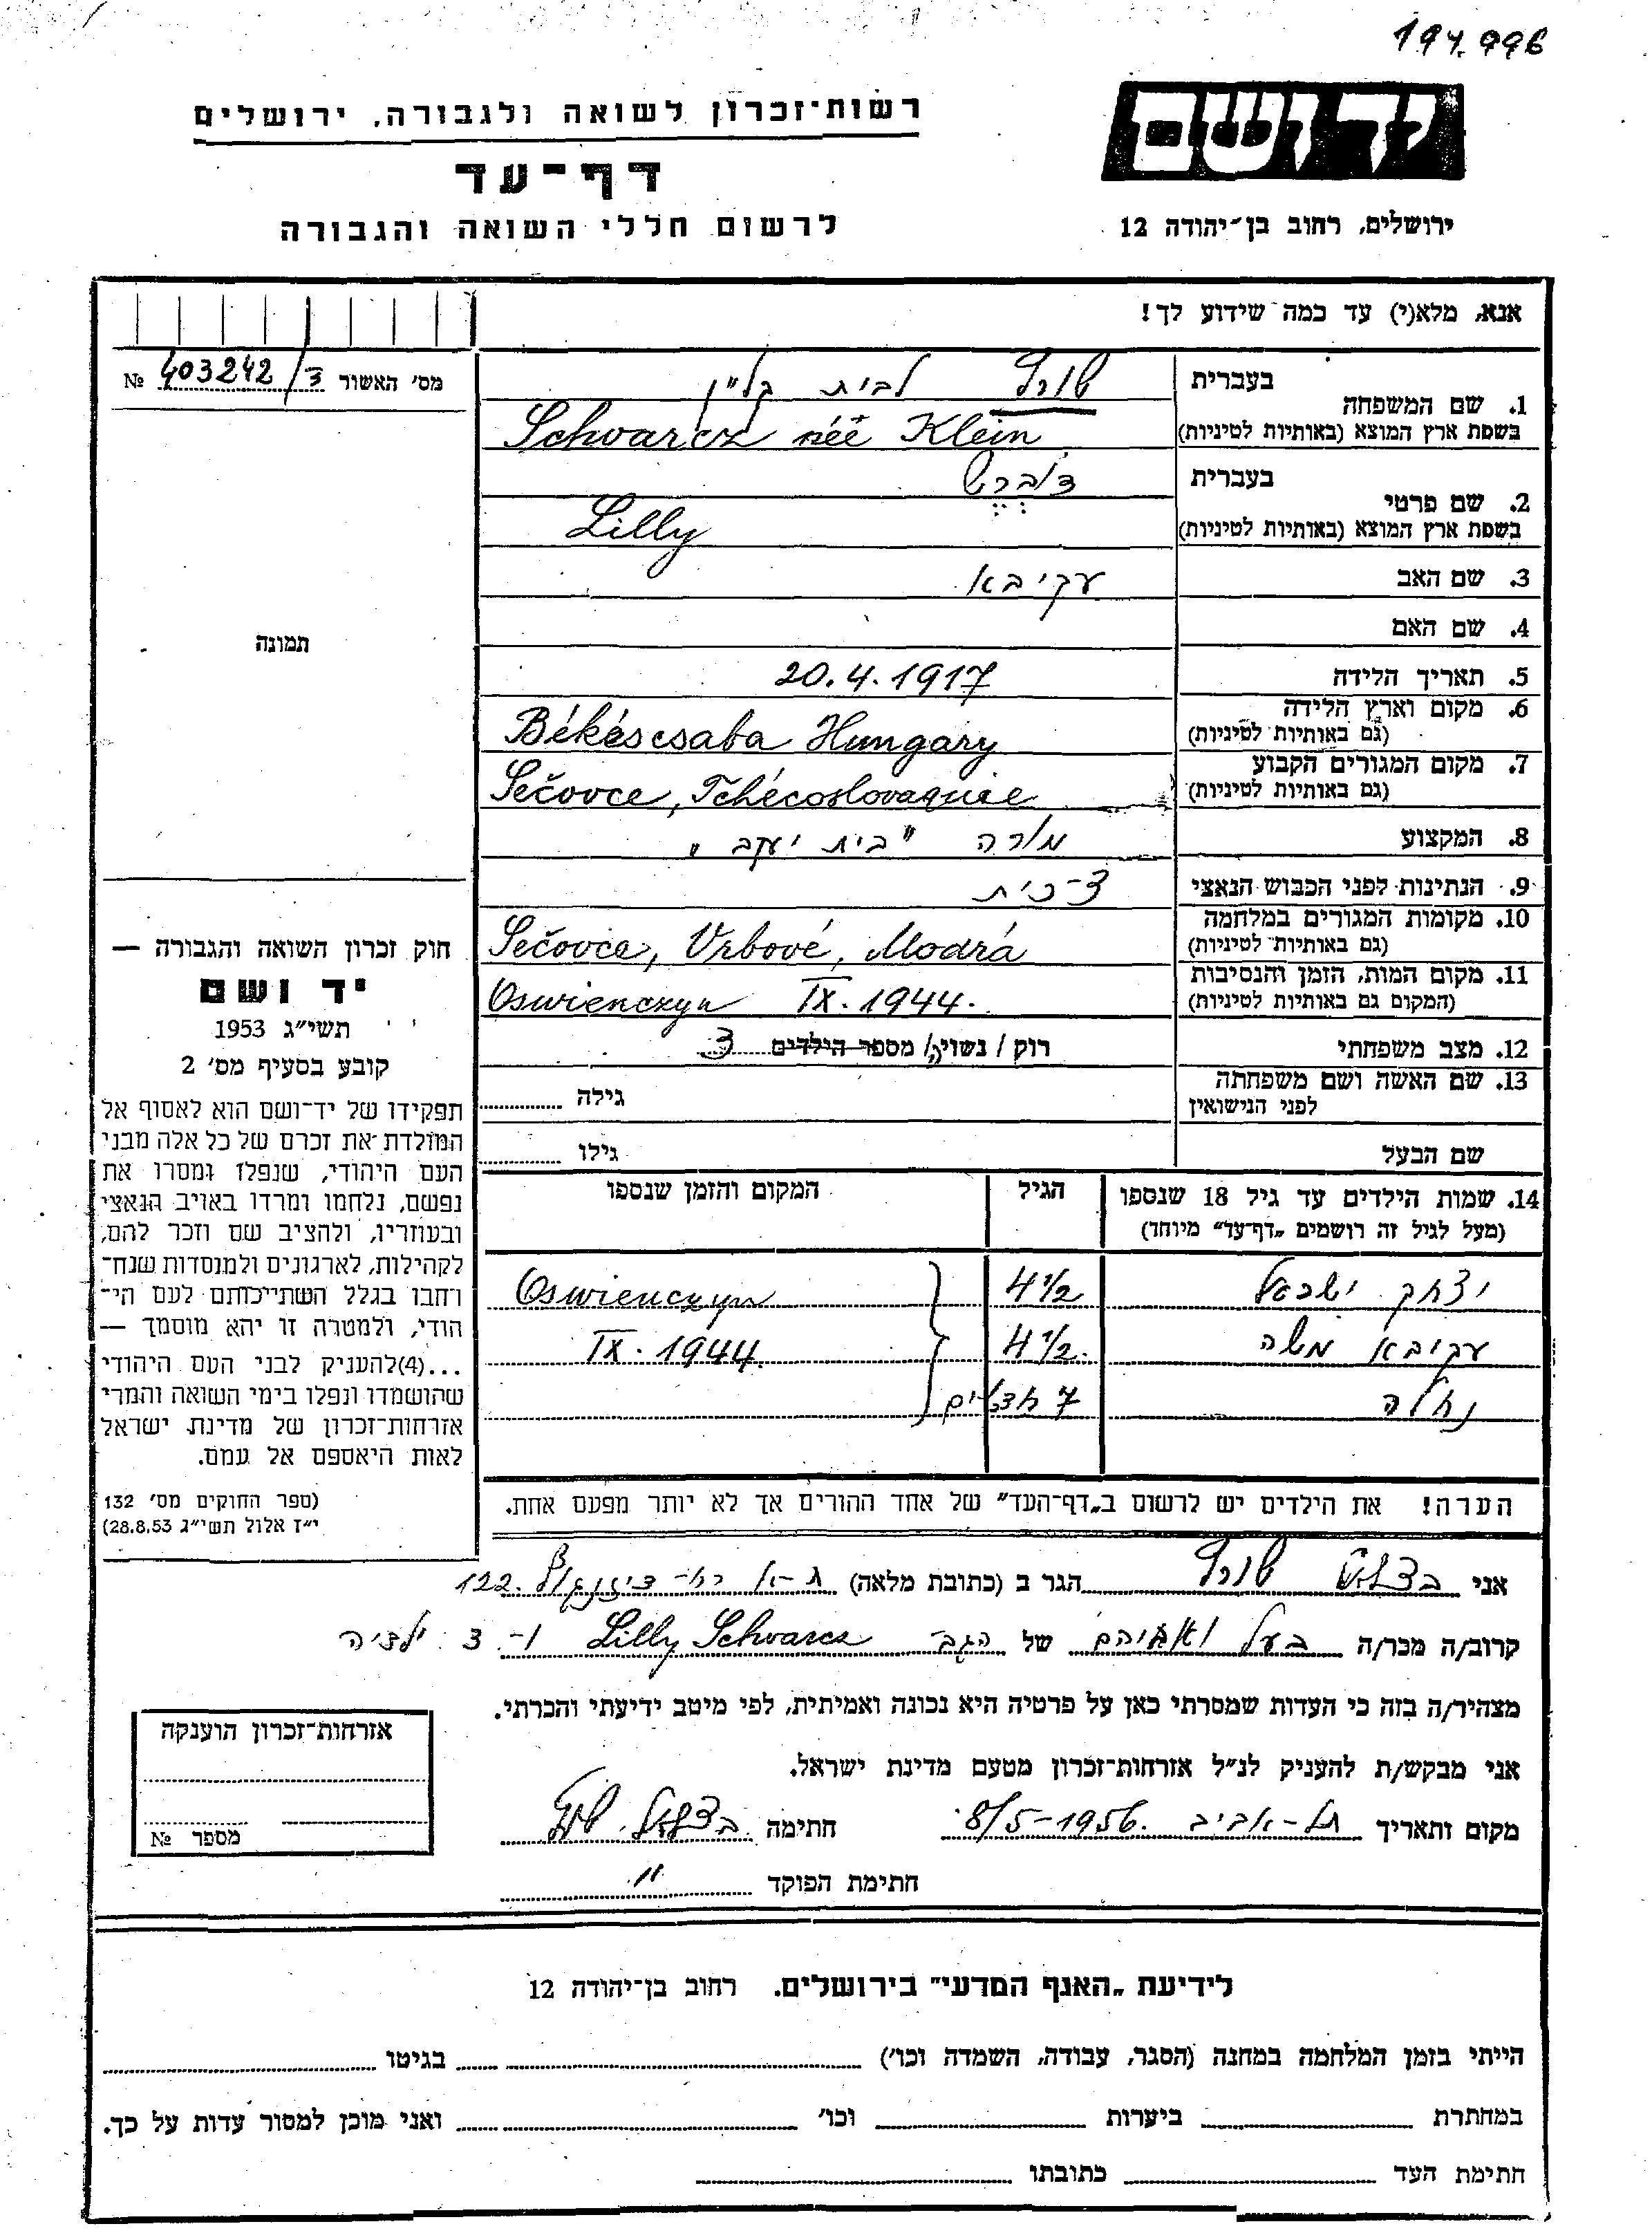 194.996
ידושם
רשות־זכרון לשואה ולגבורה, ירושלים
דף־עד
לרשום חללי השואה והגבורה
ירושלים, רחוב בן־יהודה 12
אנא, מלא(י) עד כמה שידוע לך!
מס' האשור 403242/ג №
תמונה
1. שם המשפחה
בעברית שורץ לבית קליין
בשפת ארץ המוצא (באותיות לטיניות) Schwarcz née Klein
2. שם פרטי
בעברית דוברש
בשפת ארץ המוצא (באותיות לטיניות) Lilly
3. שם האב עקיבא
4. שם האם
5. תאריך הלידה 20.4.1917
6. מקום וארץ הלידה
(גם באותיות לטיניות) Békéscsaba Hungary
7. מקום המגורים הקבוע
(גם באותיות לטיניות) Sečovce, Tchécoslovaquie
8. המקצוע מורה "בית יעקב"
9. הנתינות לפני הכבוש הנאצי צ־כית
10. מקומות המגורים במלחמה
(גם באותיות לטיניות) Sečovce, Vrbové, Modrá
11. מקום המות, הזמן והנסיבות
(המקום גם באותיות לטיניות) Oswienczyn IX. 1944.
12. מצב משפחתי רוק / נשוי/ה / מספר הילדים 3
13. שם האשה ושם משפחתה
לפני הנישואין גילה
שם הבעל גילו
14. שמות הילדים עד גיל 18 שנספו
(מעל לגיל זה רושמים „דף־עד" מיוחד)
הגיל
המקום והזמן שנספו
יצחק ישראל 4 1/2 Oswienczyn
עקיבא משה 4 1/2. IX. 1944.
נחלה 7 חדשים
הערה! את הילדים יש לרשום ב„דף־העד" של אחד ההורים אך לא יותר מפעם אחת.
חוק זכרון השואה והגבורה —
יד ושם
תשי"ג 1953
קובע בסעיף מס' 2
תפקידו של יד־ושם הוא לאסוף אל
המולדת את זכרם של כל אלה מבני
העם היהודי, שנפלו ומסרו את
נפשם, נלחמו ומרדו באויב הנאצי
ובעוזריו, ולהציב שם וזכר להם,
לקהילות, לארגונים ולמוסדות שנח־
רבו בגלל השתייכותם לעם הי־
הודי, ולמטרה זו יהא מוסמך —
...(4)להעניק לבני העם היהודי
שהושמדו ונפלו בימי השואה והמרי
אזרחות־זכרון של מדינת ישראל
לאות היאספם אל עמם.
(ספר החוקים מס' 132
י"ז אלול תשי"ג 28.8.53)
אני בצלאל שורץ הגר ב (כתובת מלאה) ת-א רח- דיזנגוף 122.
קרוב/ה מכר/ה בעל ואביהם של הגב- Lilly Schwarcz ו- 3 ילדיה
מצהיר/ה בזה כי העדות שמסרתי כאן על פרטיה היא נכונה ואמיתית, לפי מיטב ידיעתי והכרתי.
אני מבקש/ת להעניק לנ"ל אזרחות־זכרון מטעם מדינת ישראל.
מקום ותאריך תל-אביב 8/5-1956. חתימה בצלאל שורץ
חתימת הפוקד "
אזרחות־זכרון הוענקה
מספר №
לידיעת „האנף המדעי" בירושלים. רחוב בן־יהודה 12
הייתי בזמן המלחמה במחנה (הסגר, עבודה, השמדה וכו') בגיטו
במחתרת ביערות וכו' ואני מוכן למסור עדות על כך.
חתימת העד כתובתו